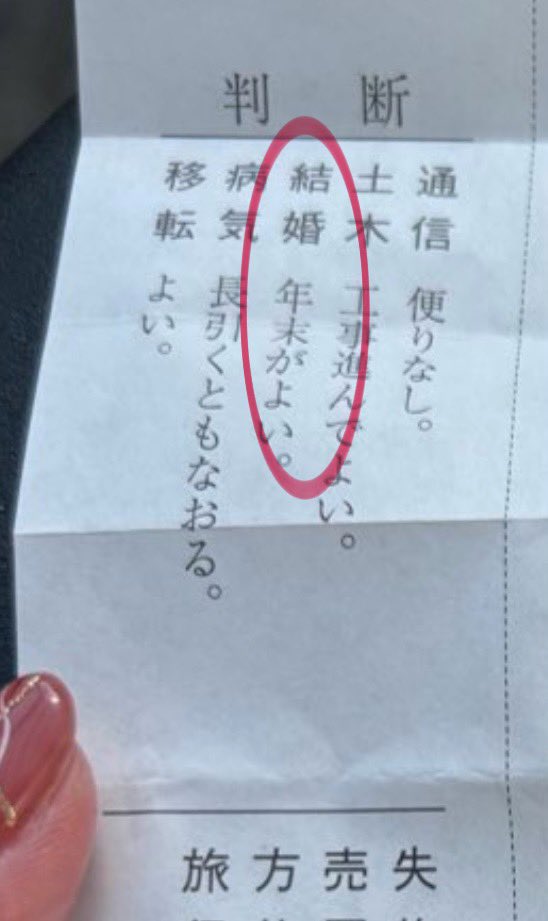 断判
通信 便りなし。
土木 工事進んでよい。
結婚 年末がよい。
病気 長引くともなおる。
移転 よい。
失
売
方
旅